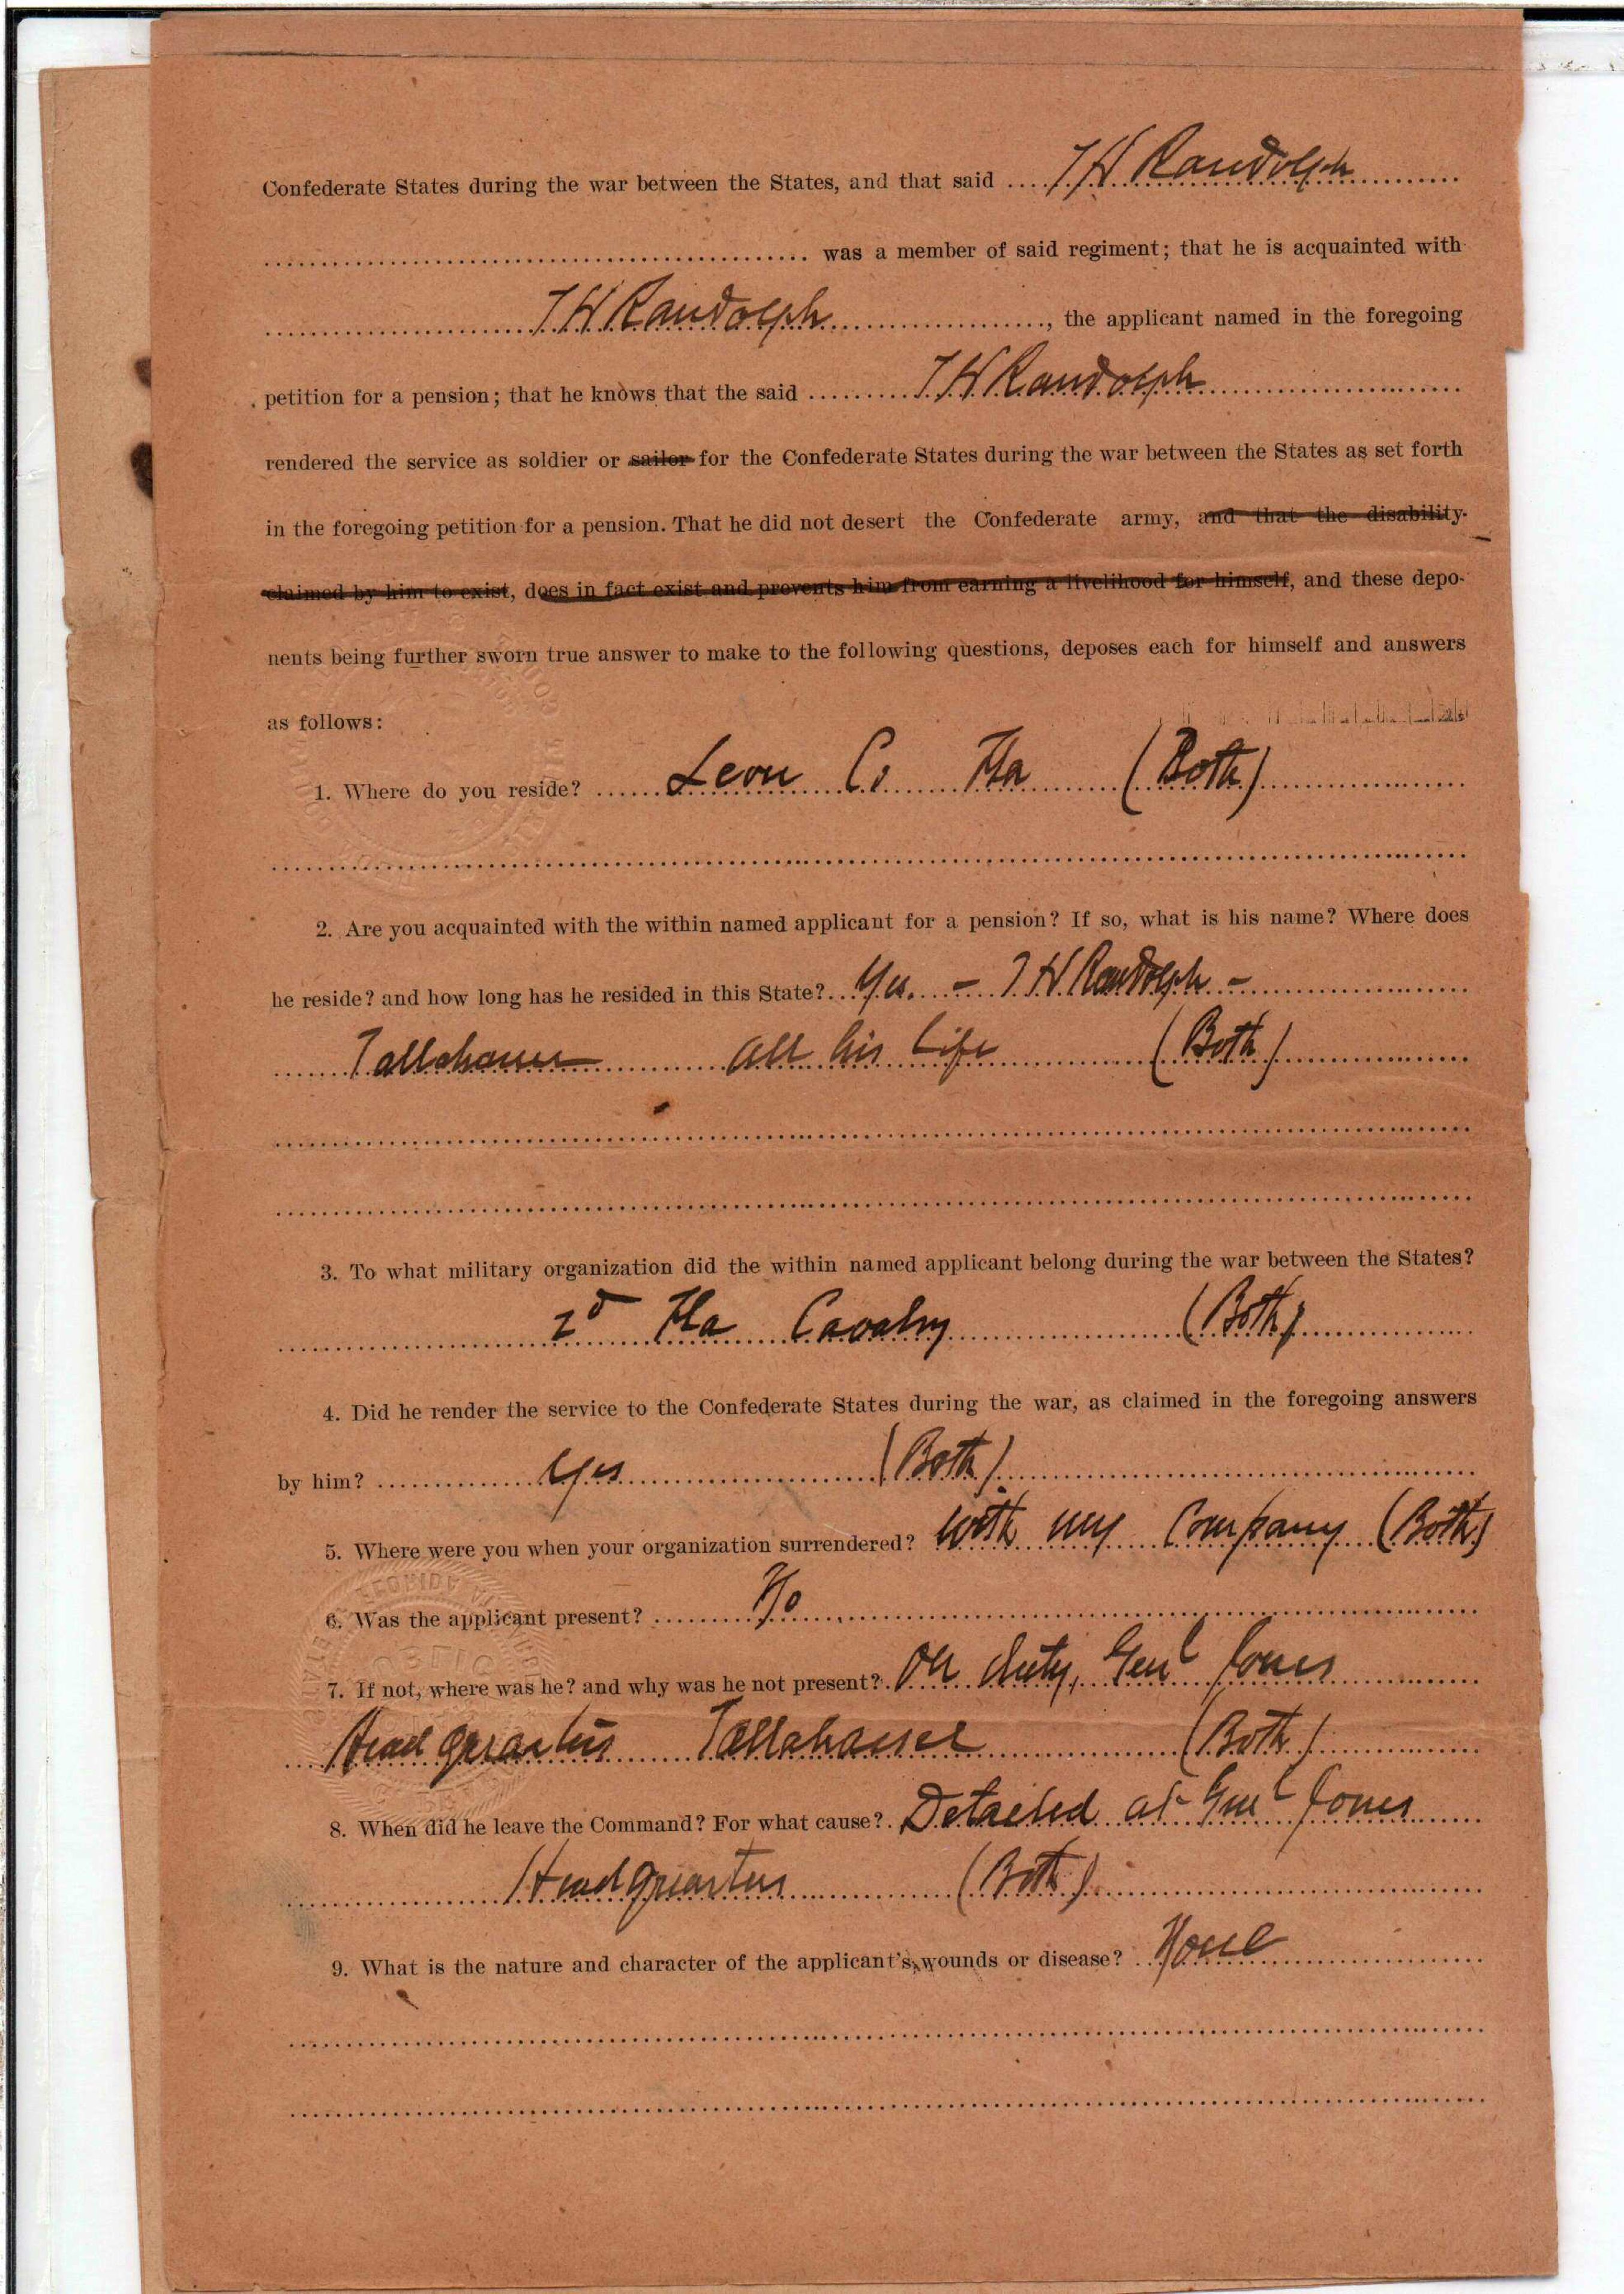 Confederate States during the war between the States, and that said .... T H Randolph
was a member of said regiment; that he is acquainted with
T H Randolph, the applicant named in the foregoing
petition for a pension; that he knows that the said T H Randolph
rendered the service as soldier or sailor for the Confederate States during the war between the States as set forth
in the foregoing petition for a pension. That he did not desert the Confederate army, and that the disability
claimed by him to exist, does in fact exist and prevents him from earning a livelihood for himself, and these depo-
nents being further sworn true answer to make to the following questions, deposes each for himself and answers
as follows:
1. Where do you reside? Leon Co Fla (Both)
2. Are you acquainted with the within named applicant for a pension? If so, what is his name? Where does
he reside? and how long has he resided in this State? Yes. - T H Randolph -
Tallahassee all his life (Both)
3. To what military organization did the within named applicant belong during the war between the States?
2d Fla Cavalry (Both)
4. Did he render the service to the Confederate States during the war, as claimed in the foregoing answers
by him? Yes (Both)
5. Where were you when your organization surrendered? With my Company (Both)
6. Was the applicant present? No
7. If not, where was he? and why was he not present? On duty, Genl Jones
Head quarters Tallahassee (Both)
8. When did he leave the Command? For what cause? Detailed at Genl Jones
Headquarters (Both)
9. What is the nature and character of the applicant's wounds or disease? None